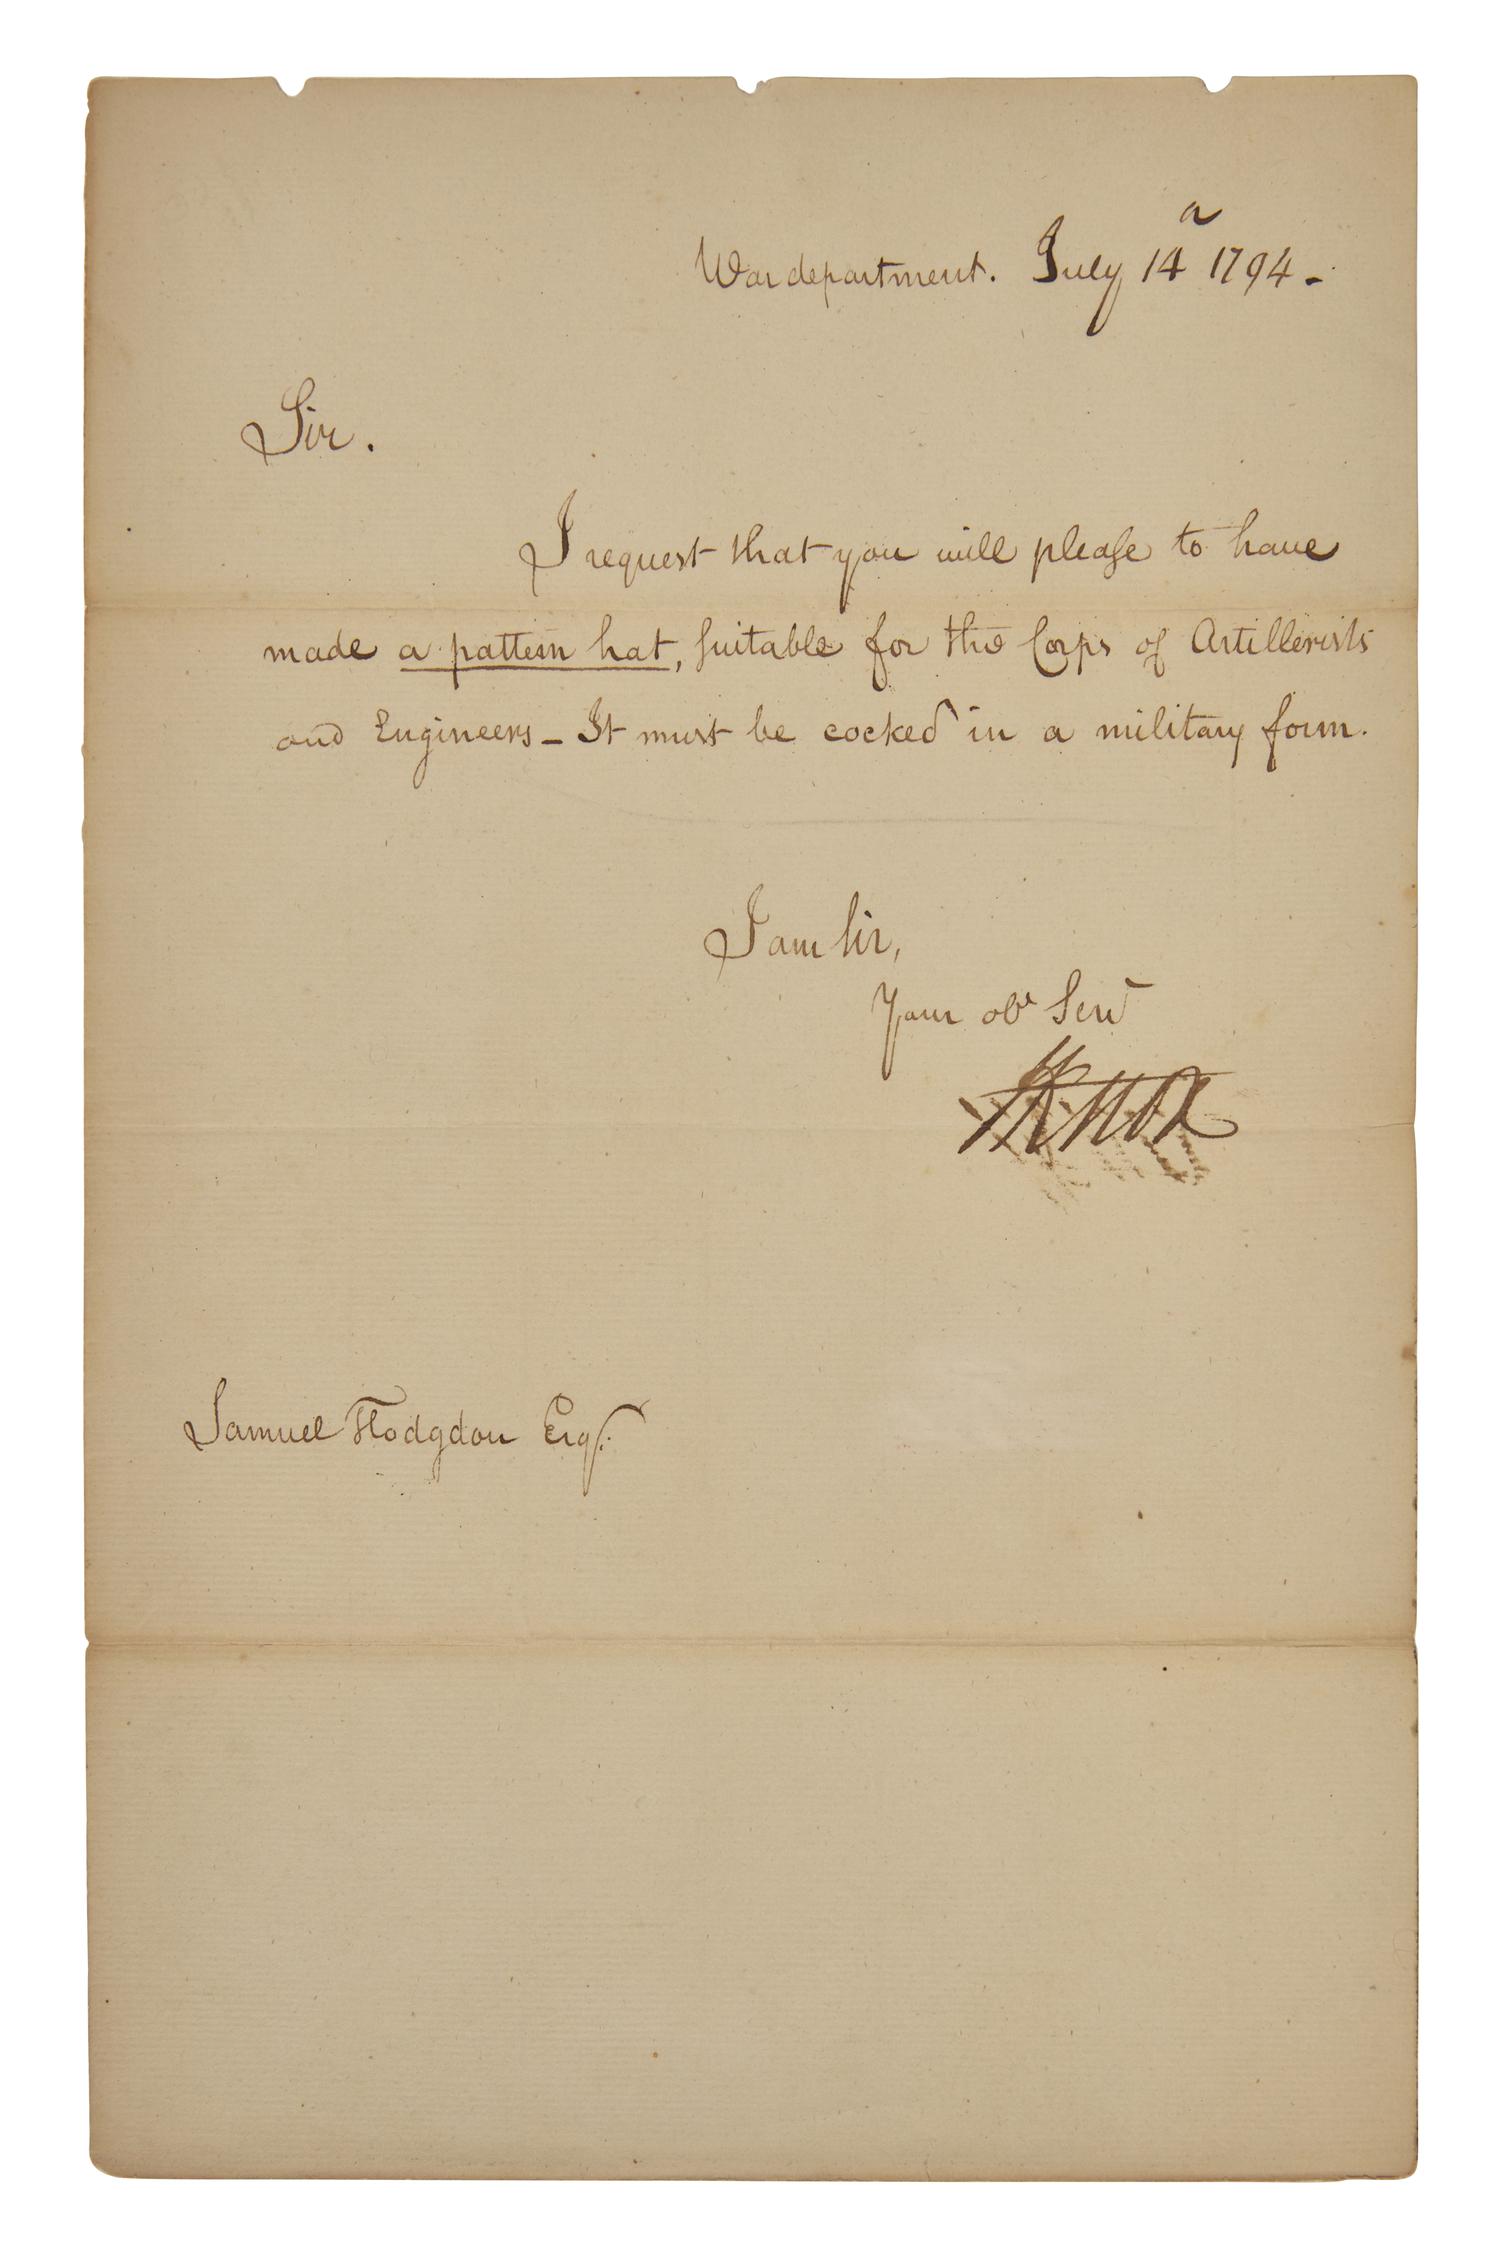 War department. July 14 1794 –
Sir.
I request that you will please to have
made a pattern hat, suitable for the Corps of Artillerists
and Engineers – It must be cocked in a military form.
I am Sir,
Your obt Servt
HKnox
Samuel Hodgdon Esqr.